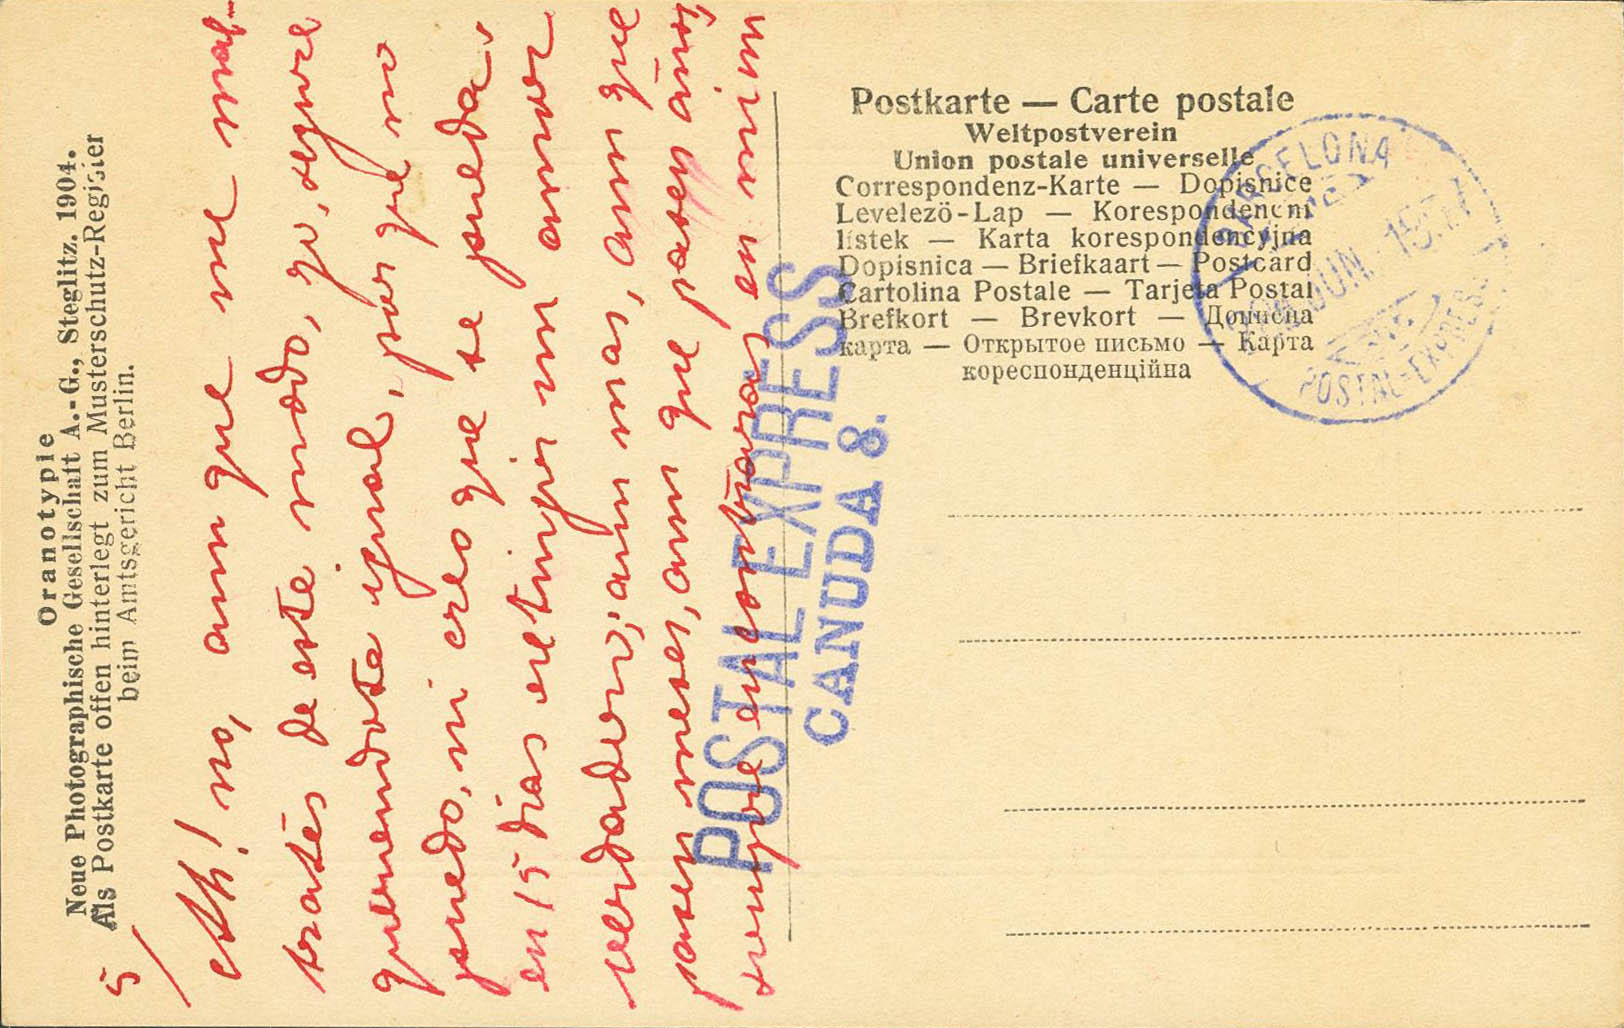 Oranotypie
Neue Photographische Gesellschaft A.-G., Steglitz. 1904.
Als Postkarte offen hinterlegt zum Musterschutz-Register
beim Amtsgericht Berlin.
5
Ah! no, aun que me mal-
tratés de este modo, yo, seguiré
quemendote igual, por qué no
puedo, ni creo que se pueda
en 15 dias extinguir un amor
verdadero; aun mas, aun que
pasen meses, aun que pasen años
siempre encontrarás en mi un
Postkarte — Carte postale
Weltpostverein
Union postale universelle
Correspondenz-Karte — Dopisnice
Levelezö-Lap — Korespondencni
lístek — Karta korespondencyjna
Dopisnica — Briefkaart — Postcard
Cartolina Postale — Tarjeta Postal
Brefkort — Brevkort — Дописна
карта — Открытое письмо — Карта
кореспонденційна
BARCELONA
JUN.
POSTAL-EXPRESS
POSTAL EXPRESS
CANUDA 8.